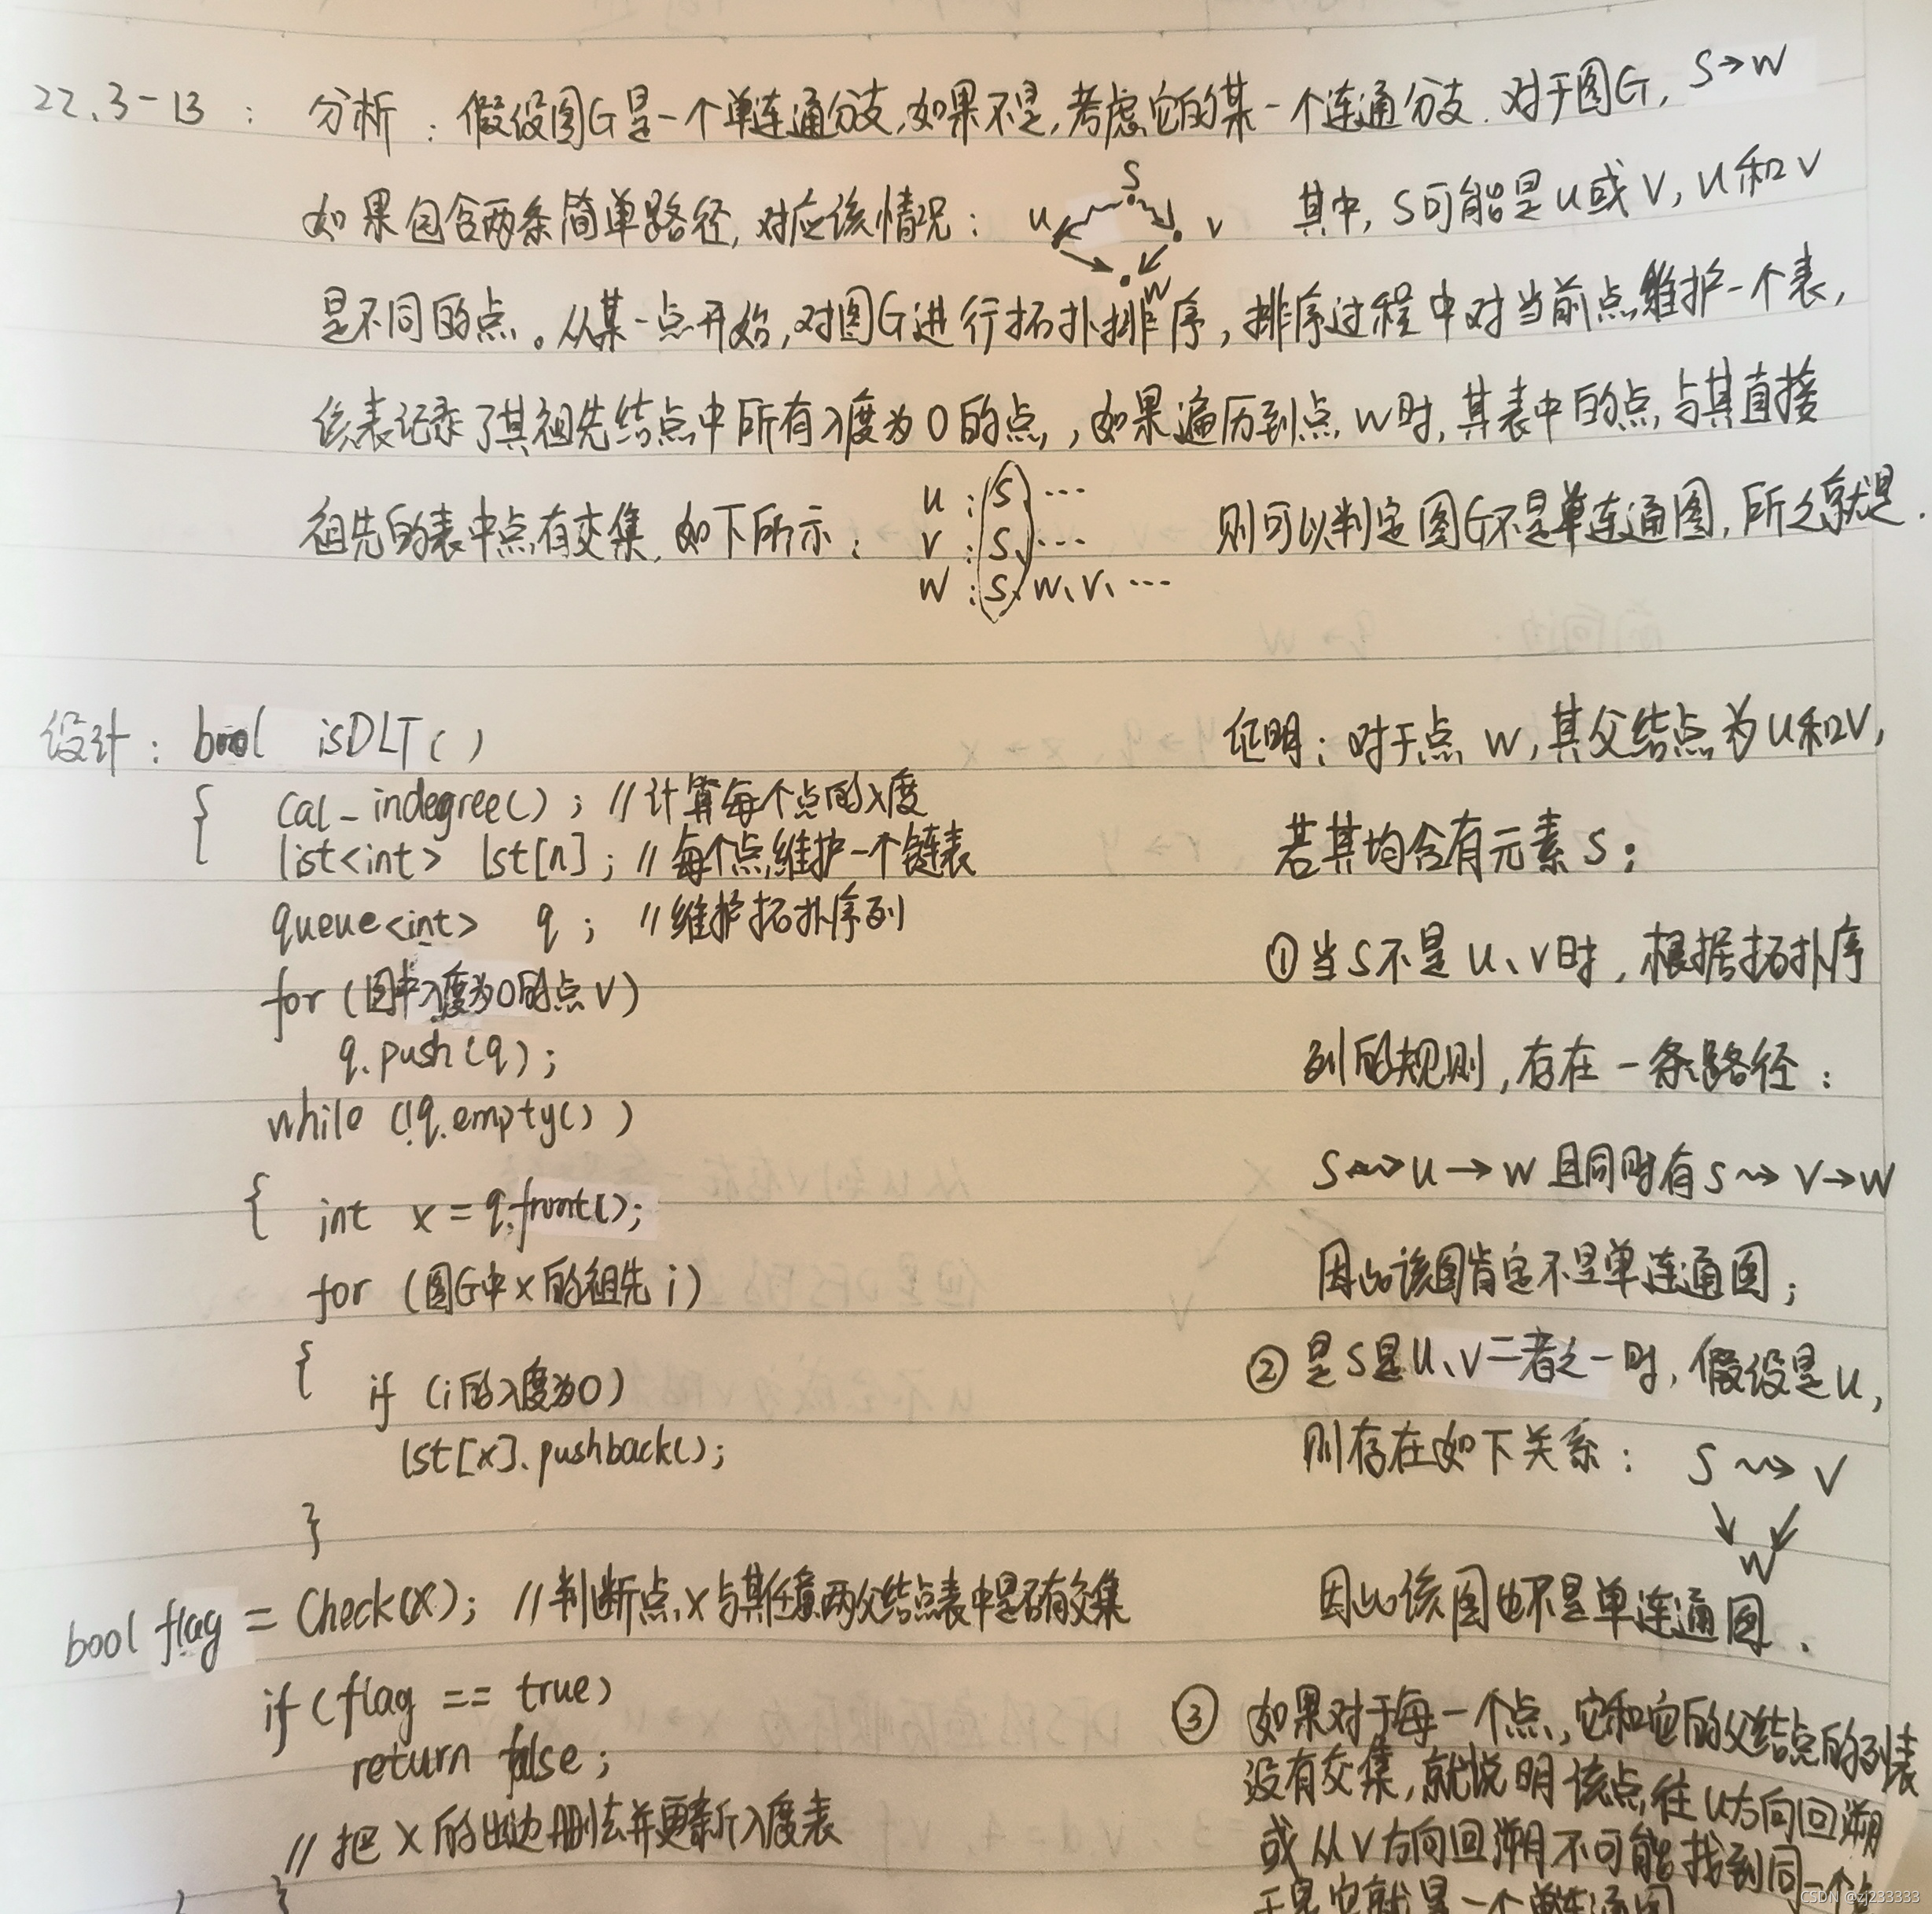 22.3-13： 分析：假设图G是一个单连通分支，如果不是，考虑它的某一个连通分支．对于图G，S→W
如果包含两条简单路径，对应该情况：
S
u v
w
其中，S可能是u或V，u和V
是不同的点。从某一点开始，对图G进行拓扑排序，排序过程中对当前点维护一个表，
该表记录了其祖先结点中所有入度为0的点，如果遍历到点w时，其表中的点与其直接
祖先的表中点有交集，如下所示：
u：S、…
v：S、…
w：S、w、v、…
则可以判定图G不是单连通图，所之就是．
设计：bool isDLT()
{ cal_indegree()；//计算每个点的入度
list<int> lst[n]；//每个点维护一个链表
queue<int> q；//维护拓扑序列
for（图中入度为0的点V）
q.push(q)；
while (!q.empty())
{ int x = q.front();
for（图G中x的祖先i）
{ if（i的入度为0）
lst[x].pushback();
}
bool flag = Check(x)；//判断点x与其任意两父结点表中是否有交集
if(flag == true)
return false；
//把x的出边删去并更新入度表
}
}
证明：对于点w，其父结点为u和V，
若其均含有元素S；
①当S不是u、v时，根据拓扑序
列的规则，存在一条路径：
S⇝u→w且同时有S⇝v→w
因此该图肯定不是单连通图；
②是S是u、v二者之一时，假设是u，
则存在如下关系：S⇝V
↘ ↙
w
因此该图也不是单连通图．
③如果对于每一个点，它和它的父结点的列表
没有交集，就说明该点往u方向回溯
或从V方向回溯不可能找到同一个
于是它就是一个单连通图
CSDN @zj233333